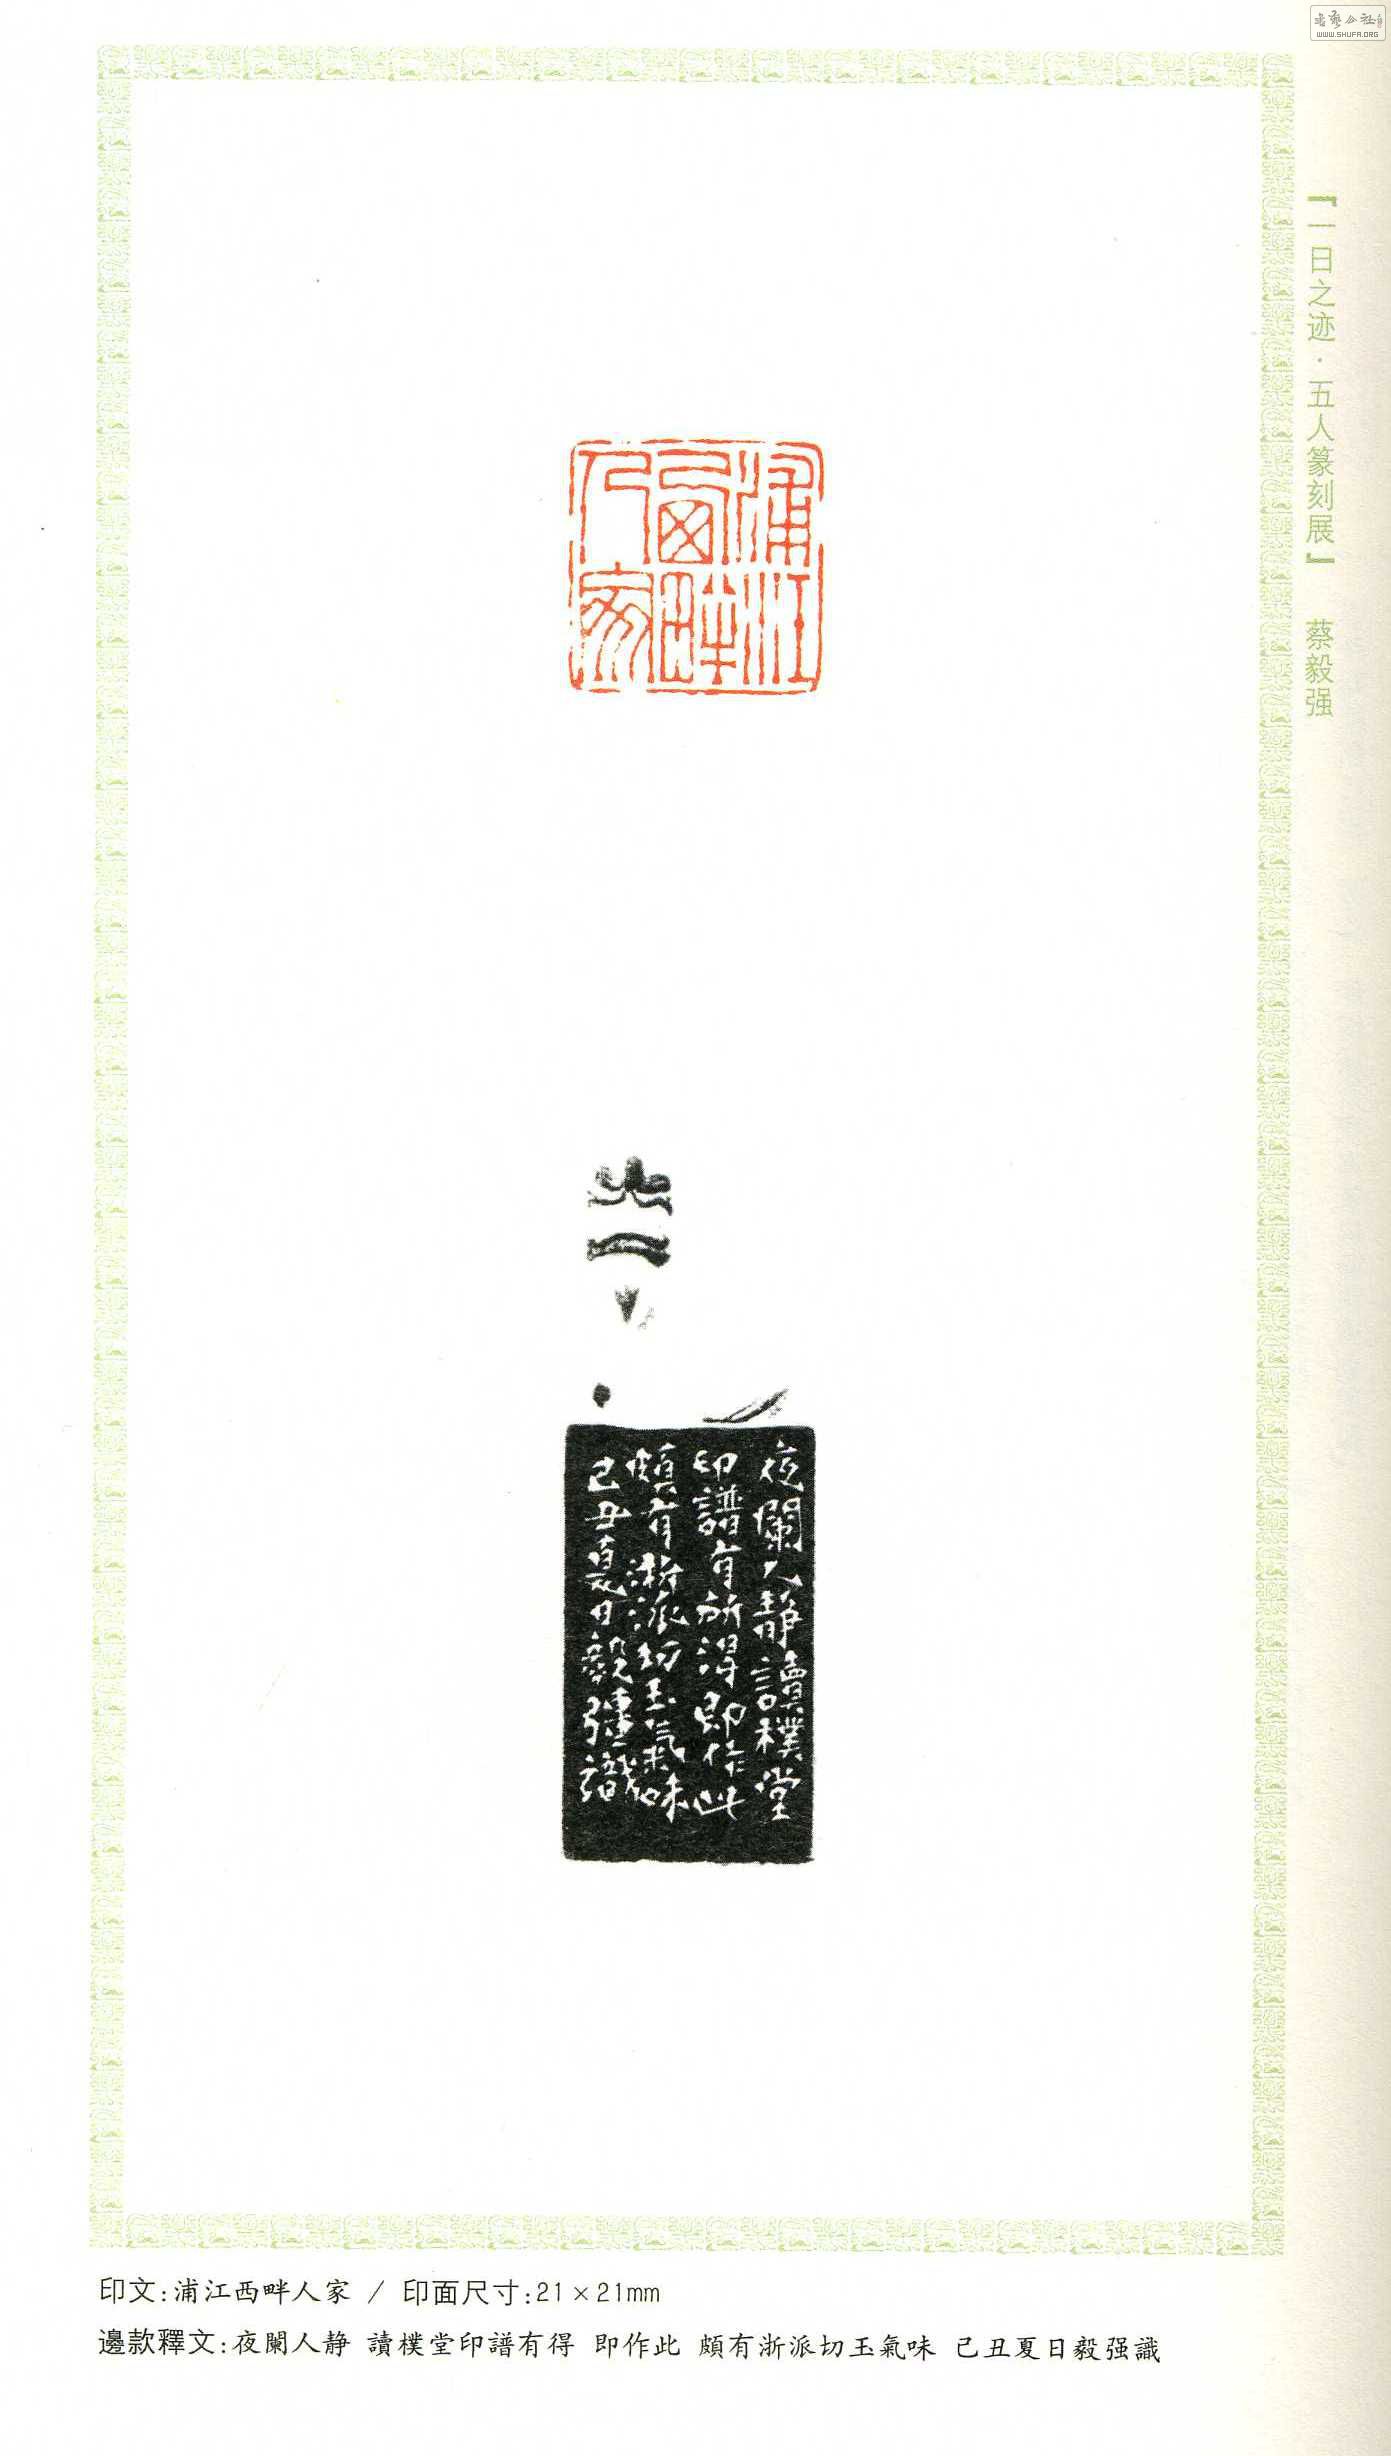 書藝公社
WWW.SHUFA.ORG
『一日之迹·五人篆刻展』 蔡毅强
浦江
西畔
人家
夜闌人靜讀樸堂
印譜有所得即作此
頗有浙派切玉氣味
己丑夏日毅彊識
印文:浦江西畔人家 / 印面尺寸:21×21mm
邊款釋文:夜闌人静 讀樸堂印譜有得 即作此 頗有浙派切玉氣味 己丑夏日毅强識